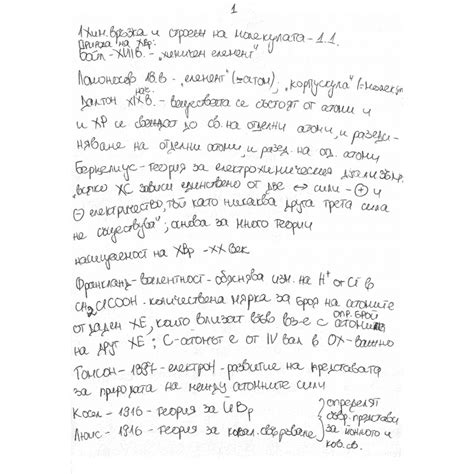 1
1 Хим. връзка и строеж на молекулата - 1.1.
Природа на хвр:
Бойл - XVII в. - „химичен елемент“
Ломоносов 18.в - „елемент“ (=атом), „корпускула“ (=молек
Далтон нач. XIX в. - веществата се състоят от атоми и
и ХР се свеждат до св. на отделни атоми, и разеди-
няване на отделни атоми, и разед. на от. атоми
Берцелиус - теория за електрохимическия дуализъм.
„всяко ХС зависи единствено от две ↔ сили - ⊕ и
⊖ електричество, тъй като никаква друга трета сила
не съществува“; основа за много теории
насищаемост на хвр - XX век
Франкланд - валентност - обяснява изм. на H⁺ от Cl в
CH₂ClCOOH - количествена мярка за броя на атомите
от даден ХЕ, които влизат във вз-е с опр. брой атоми
на друг ХЕ; С-атомът е от IV вал в ОХ - важно
Томсон - 1897 - електрон - развитие на представата
за природата на между атомните сили
Косел - 1916 - теория за ЙВр
Люис - 1916 - теория за ковал. свързване
определят
съвр. представи
за йонното и
ков. св.